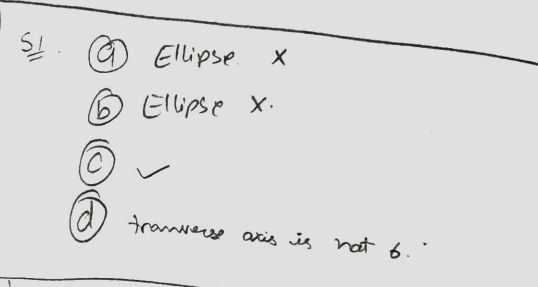 51. (a) Ellipse. X
(b) Ellipse X.
(c) ✓
(d) tranverse axis is not 6.